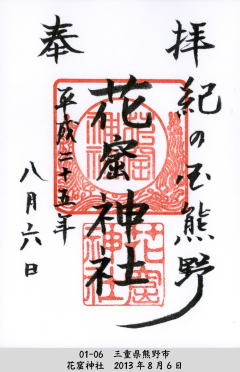 奉拝
紀の国熊野
花窟神社
平成二十五年
八月六日
01-06 三重県熊野市
花窟神社 2013年8月6日